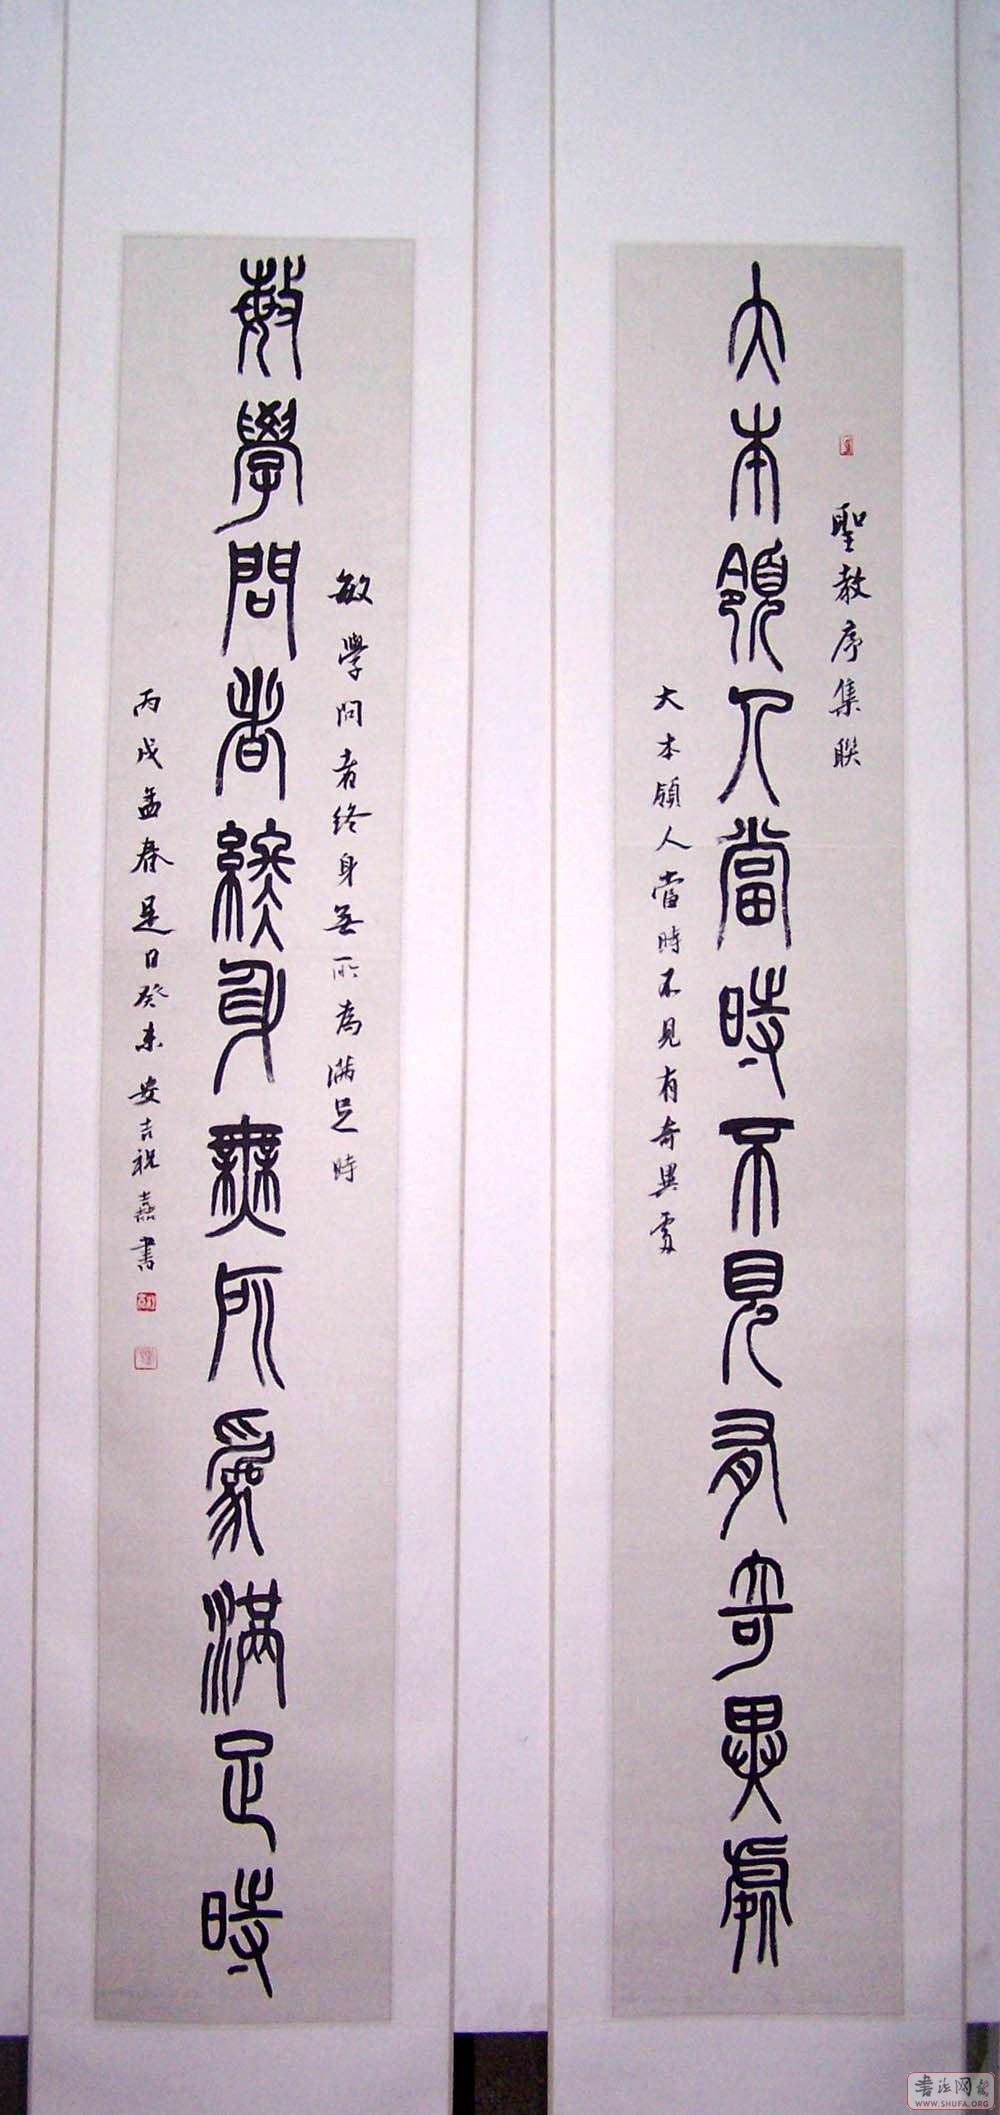 聖教序集聯
大本領人當時不見有奇異處
大本領人當時不見有奇異處
敏學問者終身無所為滿足時
敏學問者終身無所為滿足時
丙戌孟春是日癸未安吉祝熹書
書法网
WWW.SHUFA.ORG